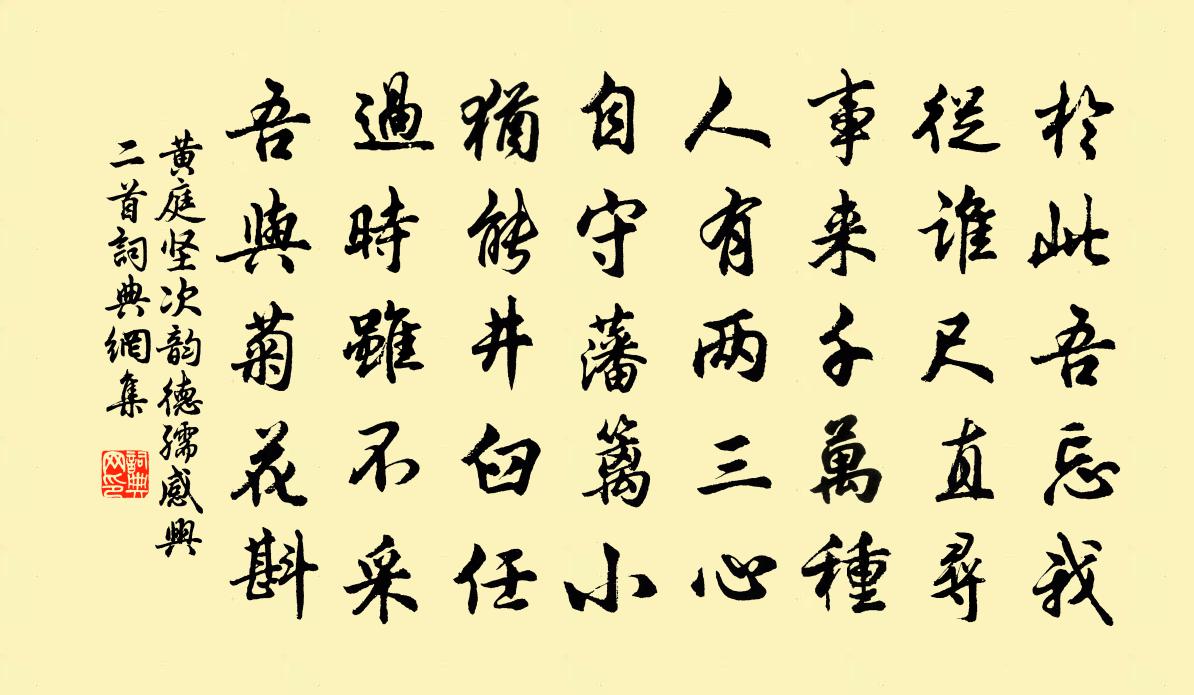 於此吾忘我
從誰尺直尋
事来千萬種
人有两三心
自守藩籬小
猶能井臼任
過時雖不采
吾與菊花斟
黄庭坚次韵德孺感興
二首詞典網集
詞典
网印